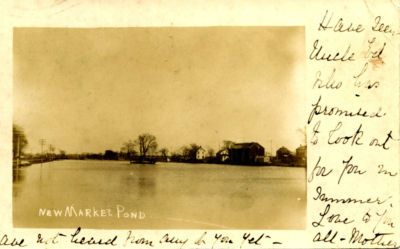 Have seen
Uncle Ed
who has
promised
to look out
for you in
Summer.
Love to you
all - Mother
NEW MARKET POND
ave not heard from any of you yet -